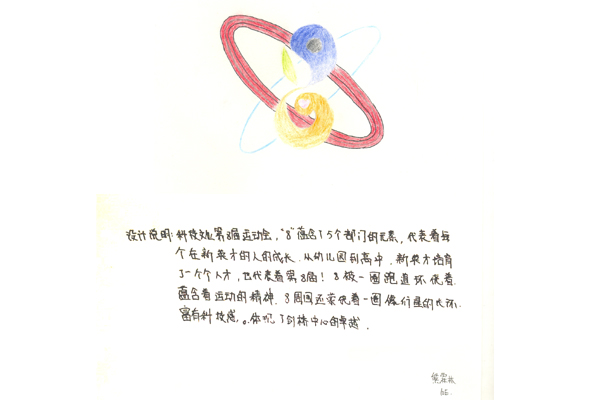 设计说明:科技如第8届运动会,“8”蕴含了5个部门的元素,代表着每
个在新英才的人的成长.从幼儿园到高中.新英才培育
了一个个人才,也代表着第8届!8被一圈跑道环绕着.
蕴含着运动的精神.8周围还萦绕着一圈像行星的光环.
富有科技感。体现了剑桥中心的卓越.